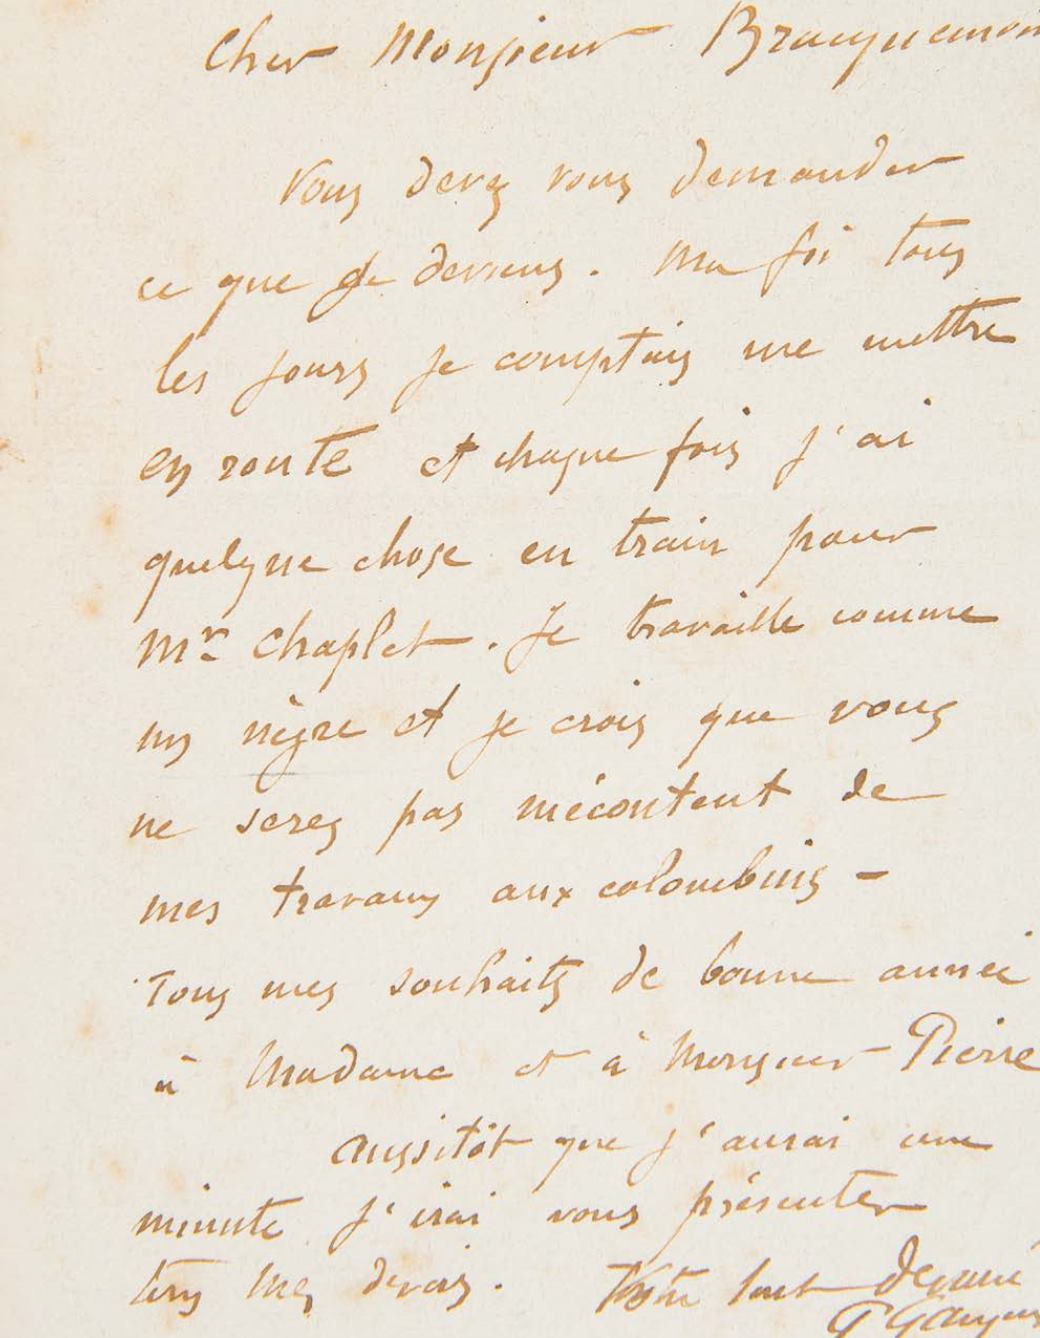 Cher Monsieur Bracquemon
Vous devez vous demander
ce que je deviens. Ma foi tous
les jours je comptais me mettre
en route et chaque fois j'ai
quelque chose en train pour
Mr Chaplet. Je travaille comme
un nègre et je crois que vous
ne serez pas mécontent de
mes travaux aux colombins -
Tous mes souhaits de bonne année
à Madame et à Monsieur Pierre
Aussitôt que j'aurai une
minute j'irai vous présenter
tous mes devoirs. Votre tout dévoué
P Gaugu